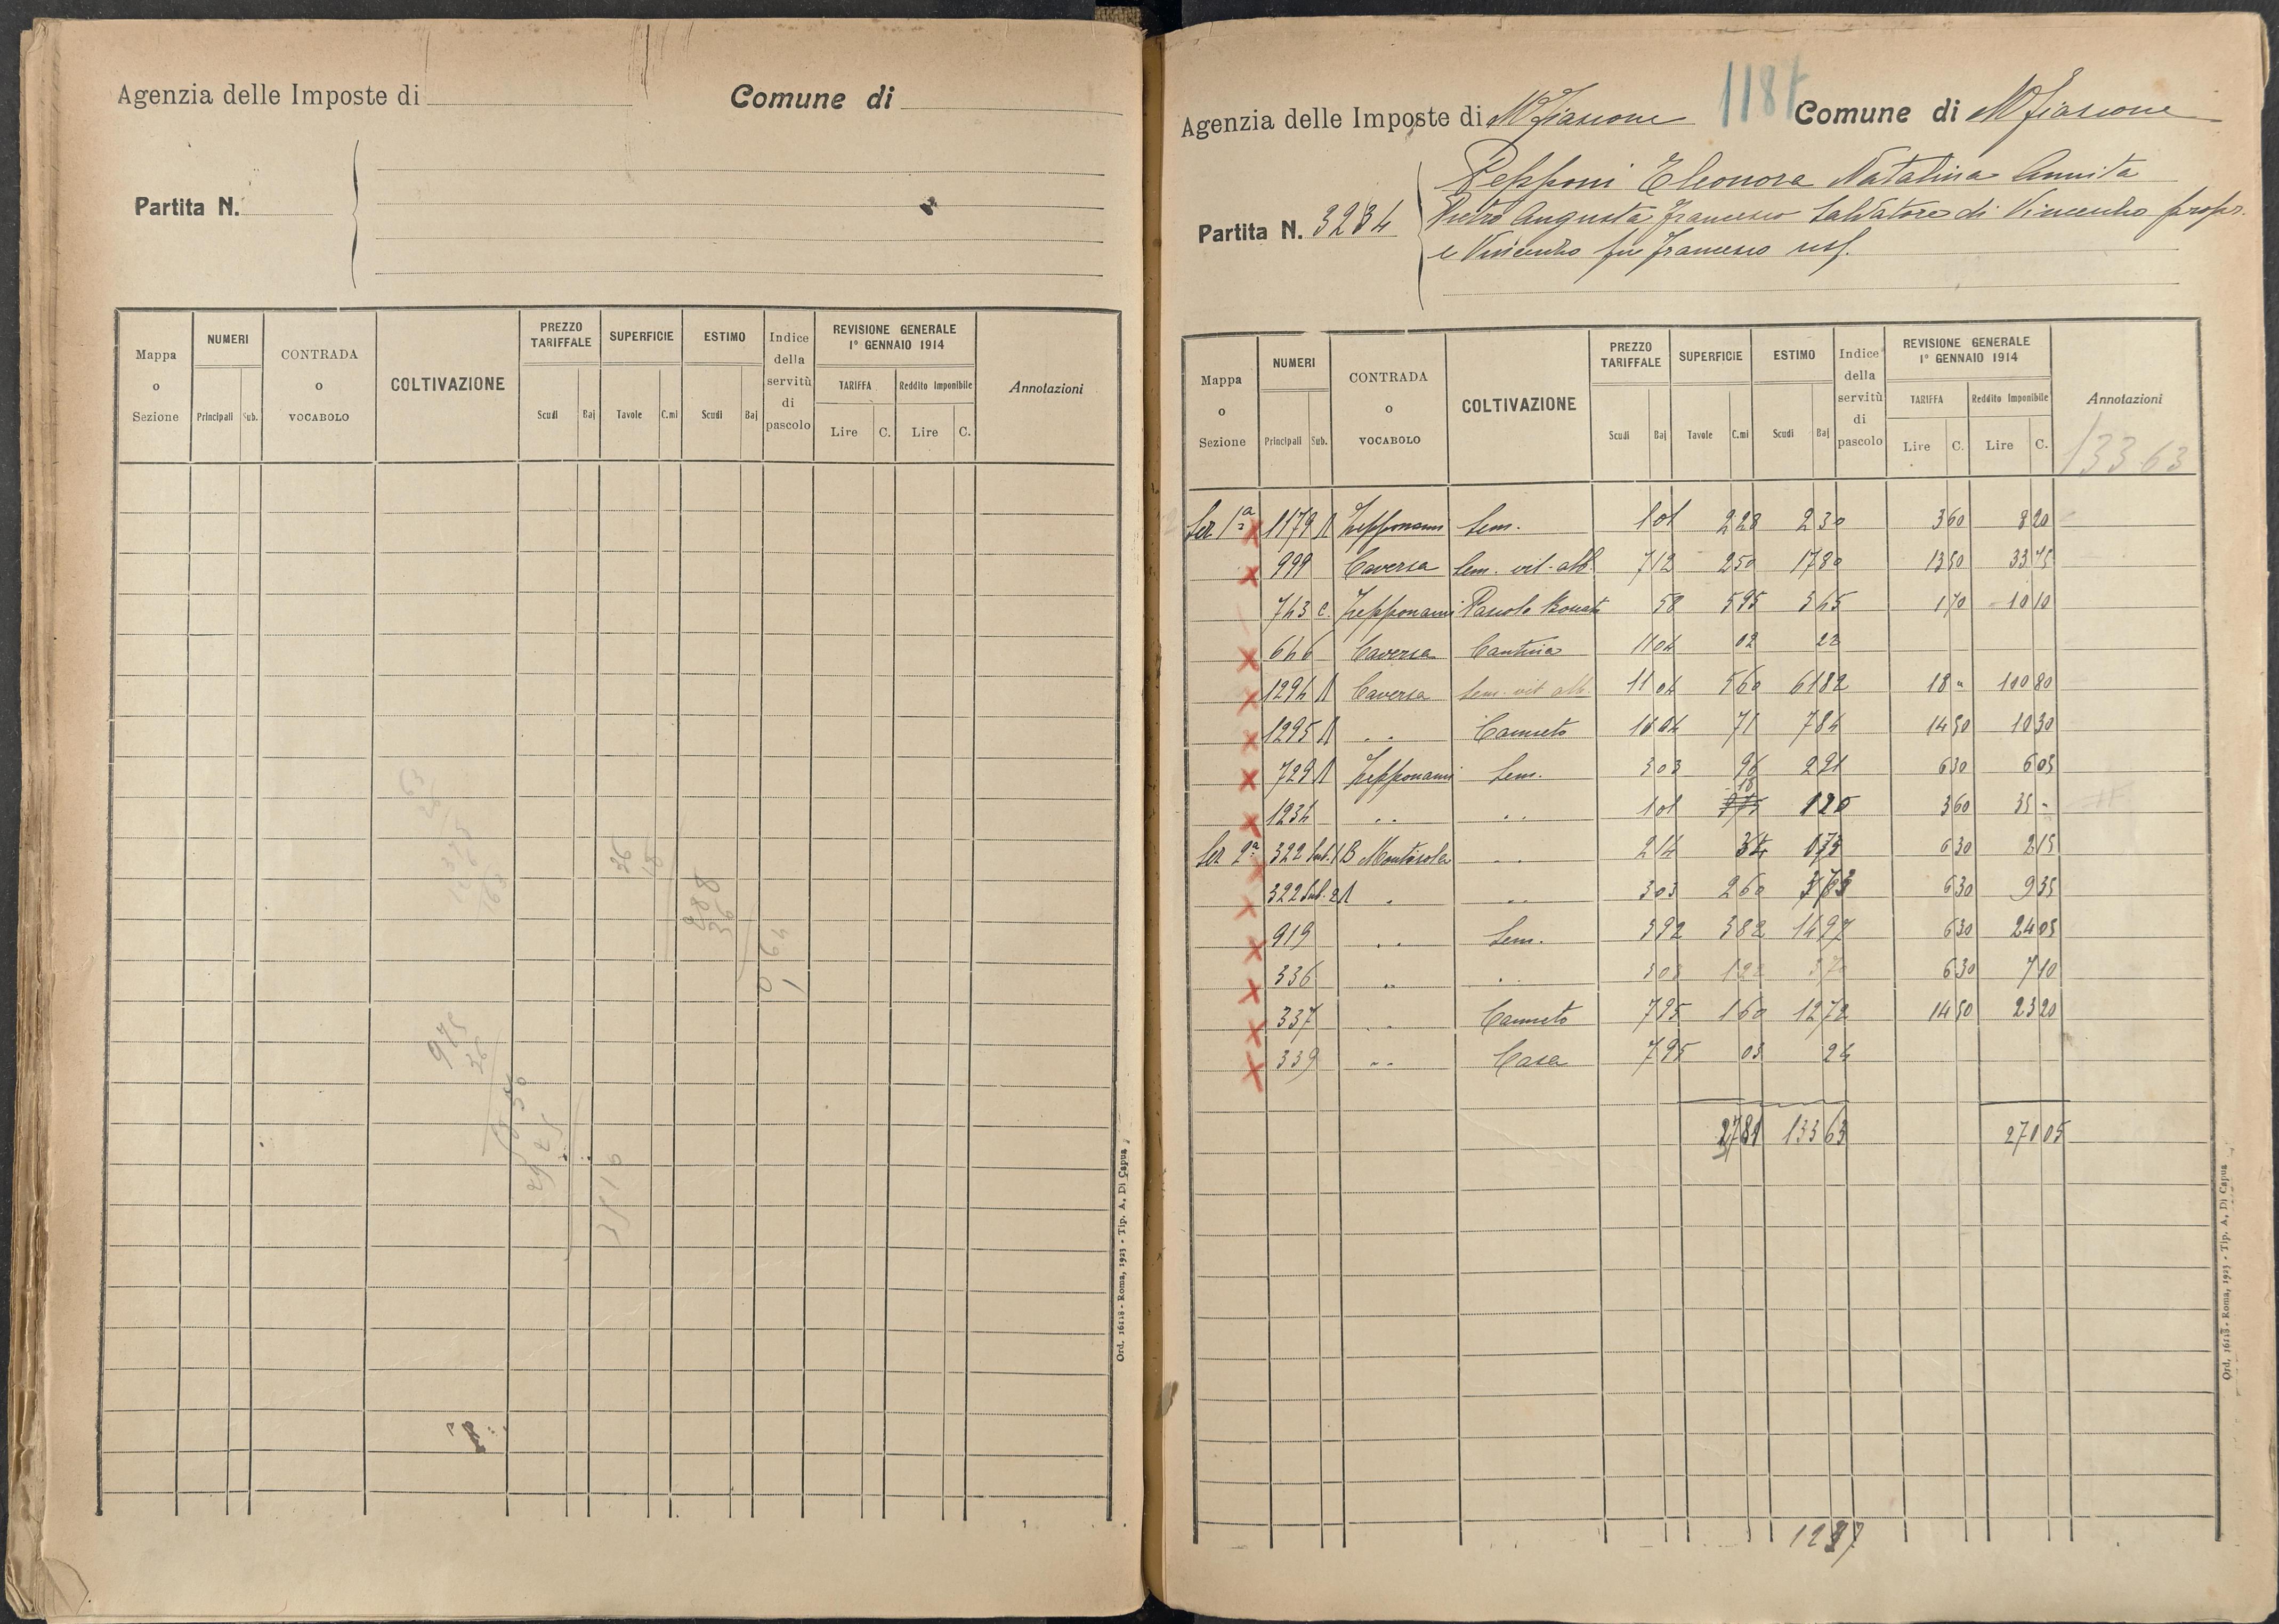 Agenzia delle Imposte di
Comune di
Partita N.
Mappa o Sezione
NUMERI
Principali Sub.
CONTRADA o VOCABOLO
COLTIVAZIONE
PREZZO TARIFFALE
Scudi Baj
SUPERFICIE
Tavole C.mi
ESTIMO
Scudi Baj
Indice della servitù di pascolo
REVISIONE GENERALE
1° GENNAIO 1914
TARIFFA Reddito Imponibile
Lire C. Lire C.
Annotazioni
Ord. 16118 - Roma, 1923 - Tip. A. Di Capua
1187
Agenzia delle Imposte di Mfiascone Comune di Mfiascone
Partita N. 3234
Pepponi Eleonora Natalina Annita
Pietro Augusta Francesco Salvatore di Vincenzo propr.
e Vincenzo fu Francesco usf.
Mappa o Sezione
NUMERI
Principali Sub.
CONTRADA o VOCABOLO
COLTIVAZIONE
PREZZO TARIFFALE
Scudi Baj
SUPERFICIE
Tavole C.mi
ESTIMO
Scudi Baj
Indice della servitù di pascolo
REVISIONE GENERALE
1° GENNAIO 1914
TARIFFA Reddito Imponibile
Lire C. Lire C.
Annotazioni
13363
Sez 1ª 1179 Zepponami Sem. 1 01 2 28 2 30 3 60 8 20
999 Caversa Sem. vit. alb. 7 12 2 50 17 80 13 50 33 75
743 c. Zepponami Pascolo 58 5 95 3 45 1 70 10 10
646 Caversa Cantina 11 04 02 22
1294 Caversa Sem. vit. alb. 11 04 5 60 61 82 18 " 100 80
1295 " " Canneto 11 04 71 7 84 14 50 10 30
729 Zepponami Sem. 3 03 96 2 91 6 30 6 05
1234 " " " " 1 01 1 20 3 60 35 -
Sez 2ª 322 Sub. 1 B Montisola " " 2 14 34 0 73 6 30 2 15
322 Sub. 2 " " " 3 03 2 60 6 30 9 35
919 " " Sem. 3 92 3 82 14 97 6 30 24 05
336 " " " 3 03 1 22 3 70 6 30 7 10
337 " " Canneto 7 95 1 60 12 72 14 50 23 20
339 " " Casa 7 95 03 24
27 81 133 63 270 05
1287
Ord. 16118 - Roma, 1923 - Tip. A. Di Capua